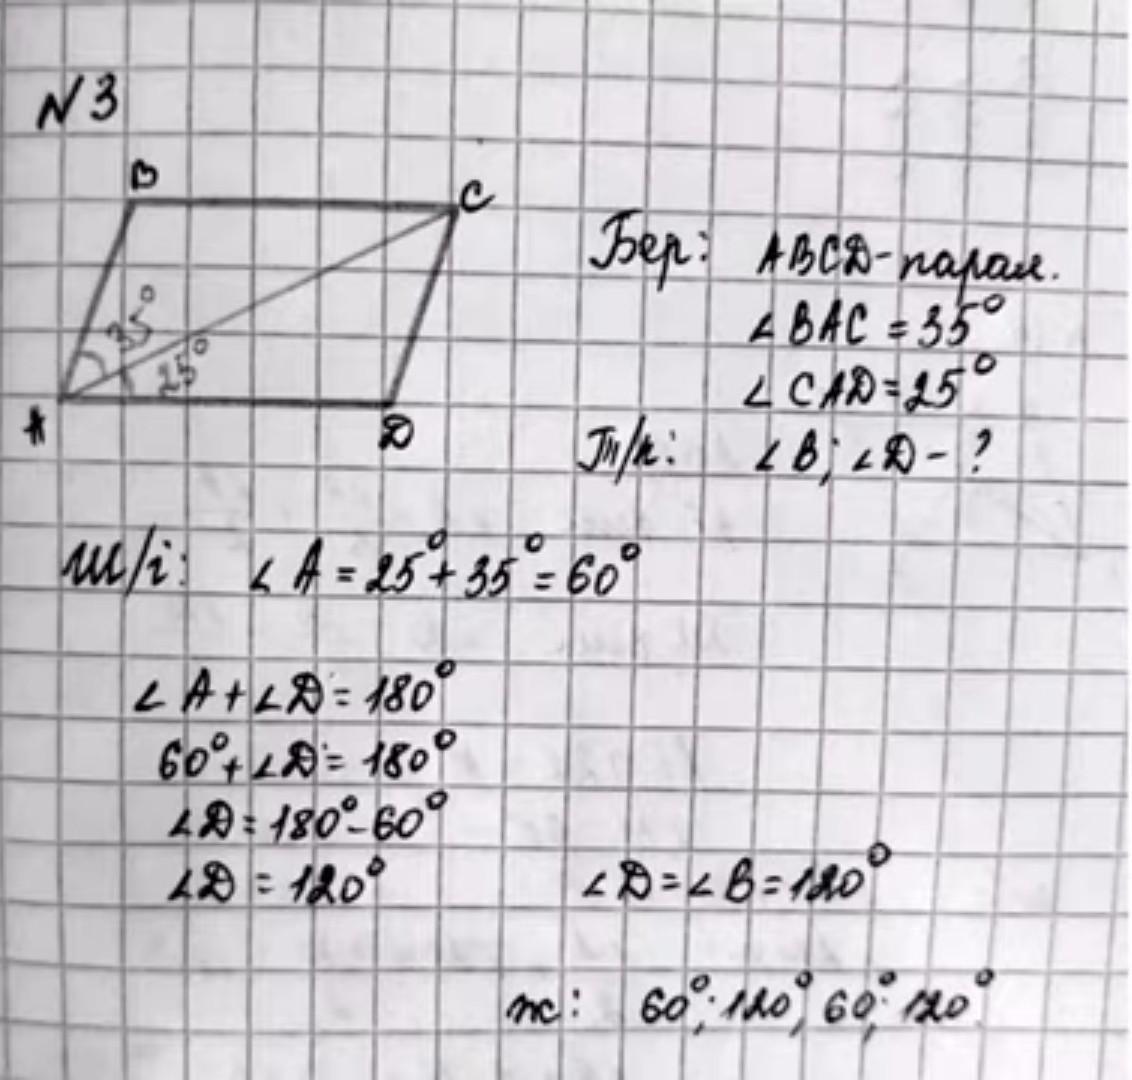 N3
B
C
35°
25°
A
D
Бер: ABCD-парал.
∠BAC = 35°
∠CAD = 25°
Т/к: ∠B; ∠D - ?
Ш/і: ∠A = 25° + 35° = 60°
∠A + ∠D = 180°
60° + ∠D = 180°
∠D = 180° - 60°
∠D = 120°
∠D = ∠B = 120°
ж: 60°; 120°; 60°; 120°